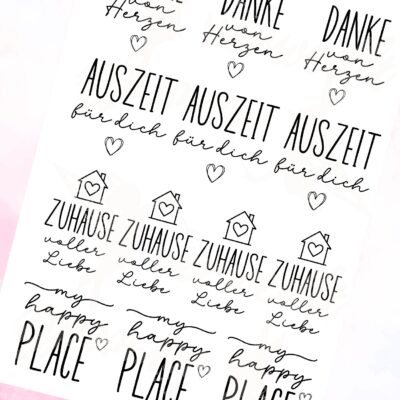 DANKE DANKE
von von von
Herzen Herzen Herzen
AUSZEIT AUSZEIT AUSZEIT
für dich für dich für dich
ZUHAUSE ZUHAUSE ZUHAUSE ZUHAUSE
voller voller voller voller
Liebe Liebe Liebe Liebe
my my my
happy happy happy
PLACE PLACE PLACE